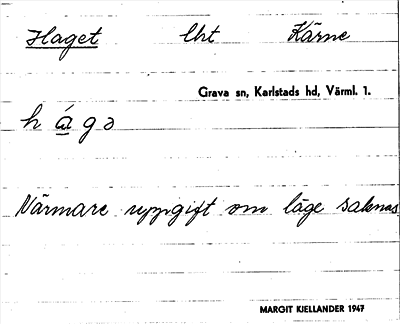 Haget lht Kärne
Grava sn, Karlstads hd, Värml. 1.
h á̲ g ə
Närmare uppgift om läge saknas
MARGIT KJELLANDER 1947